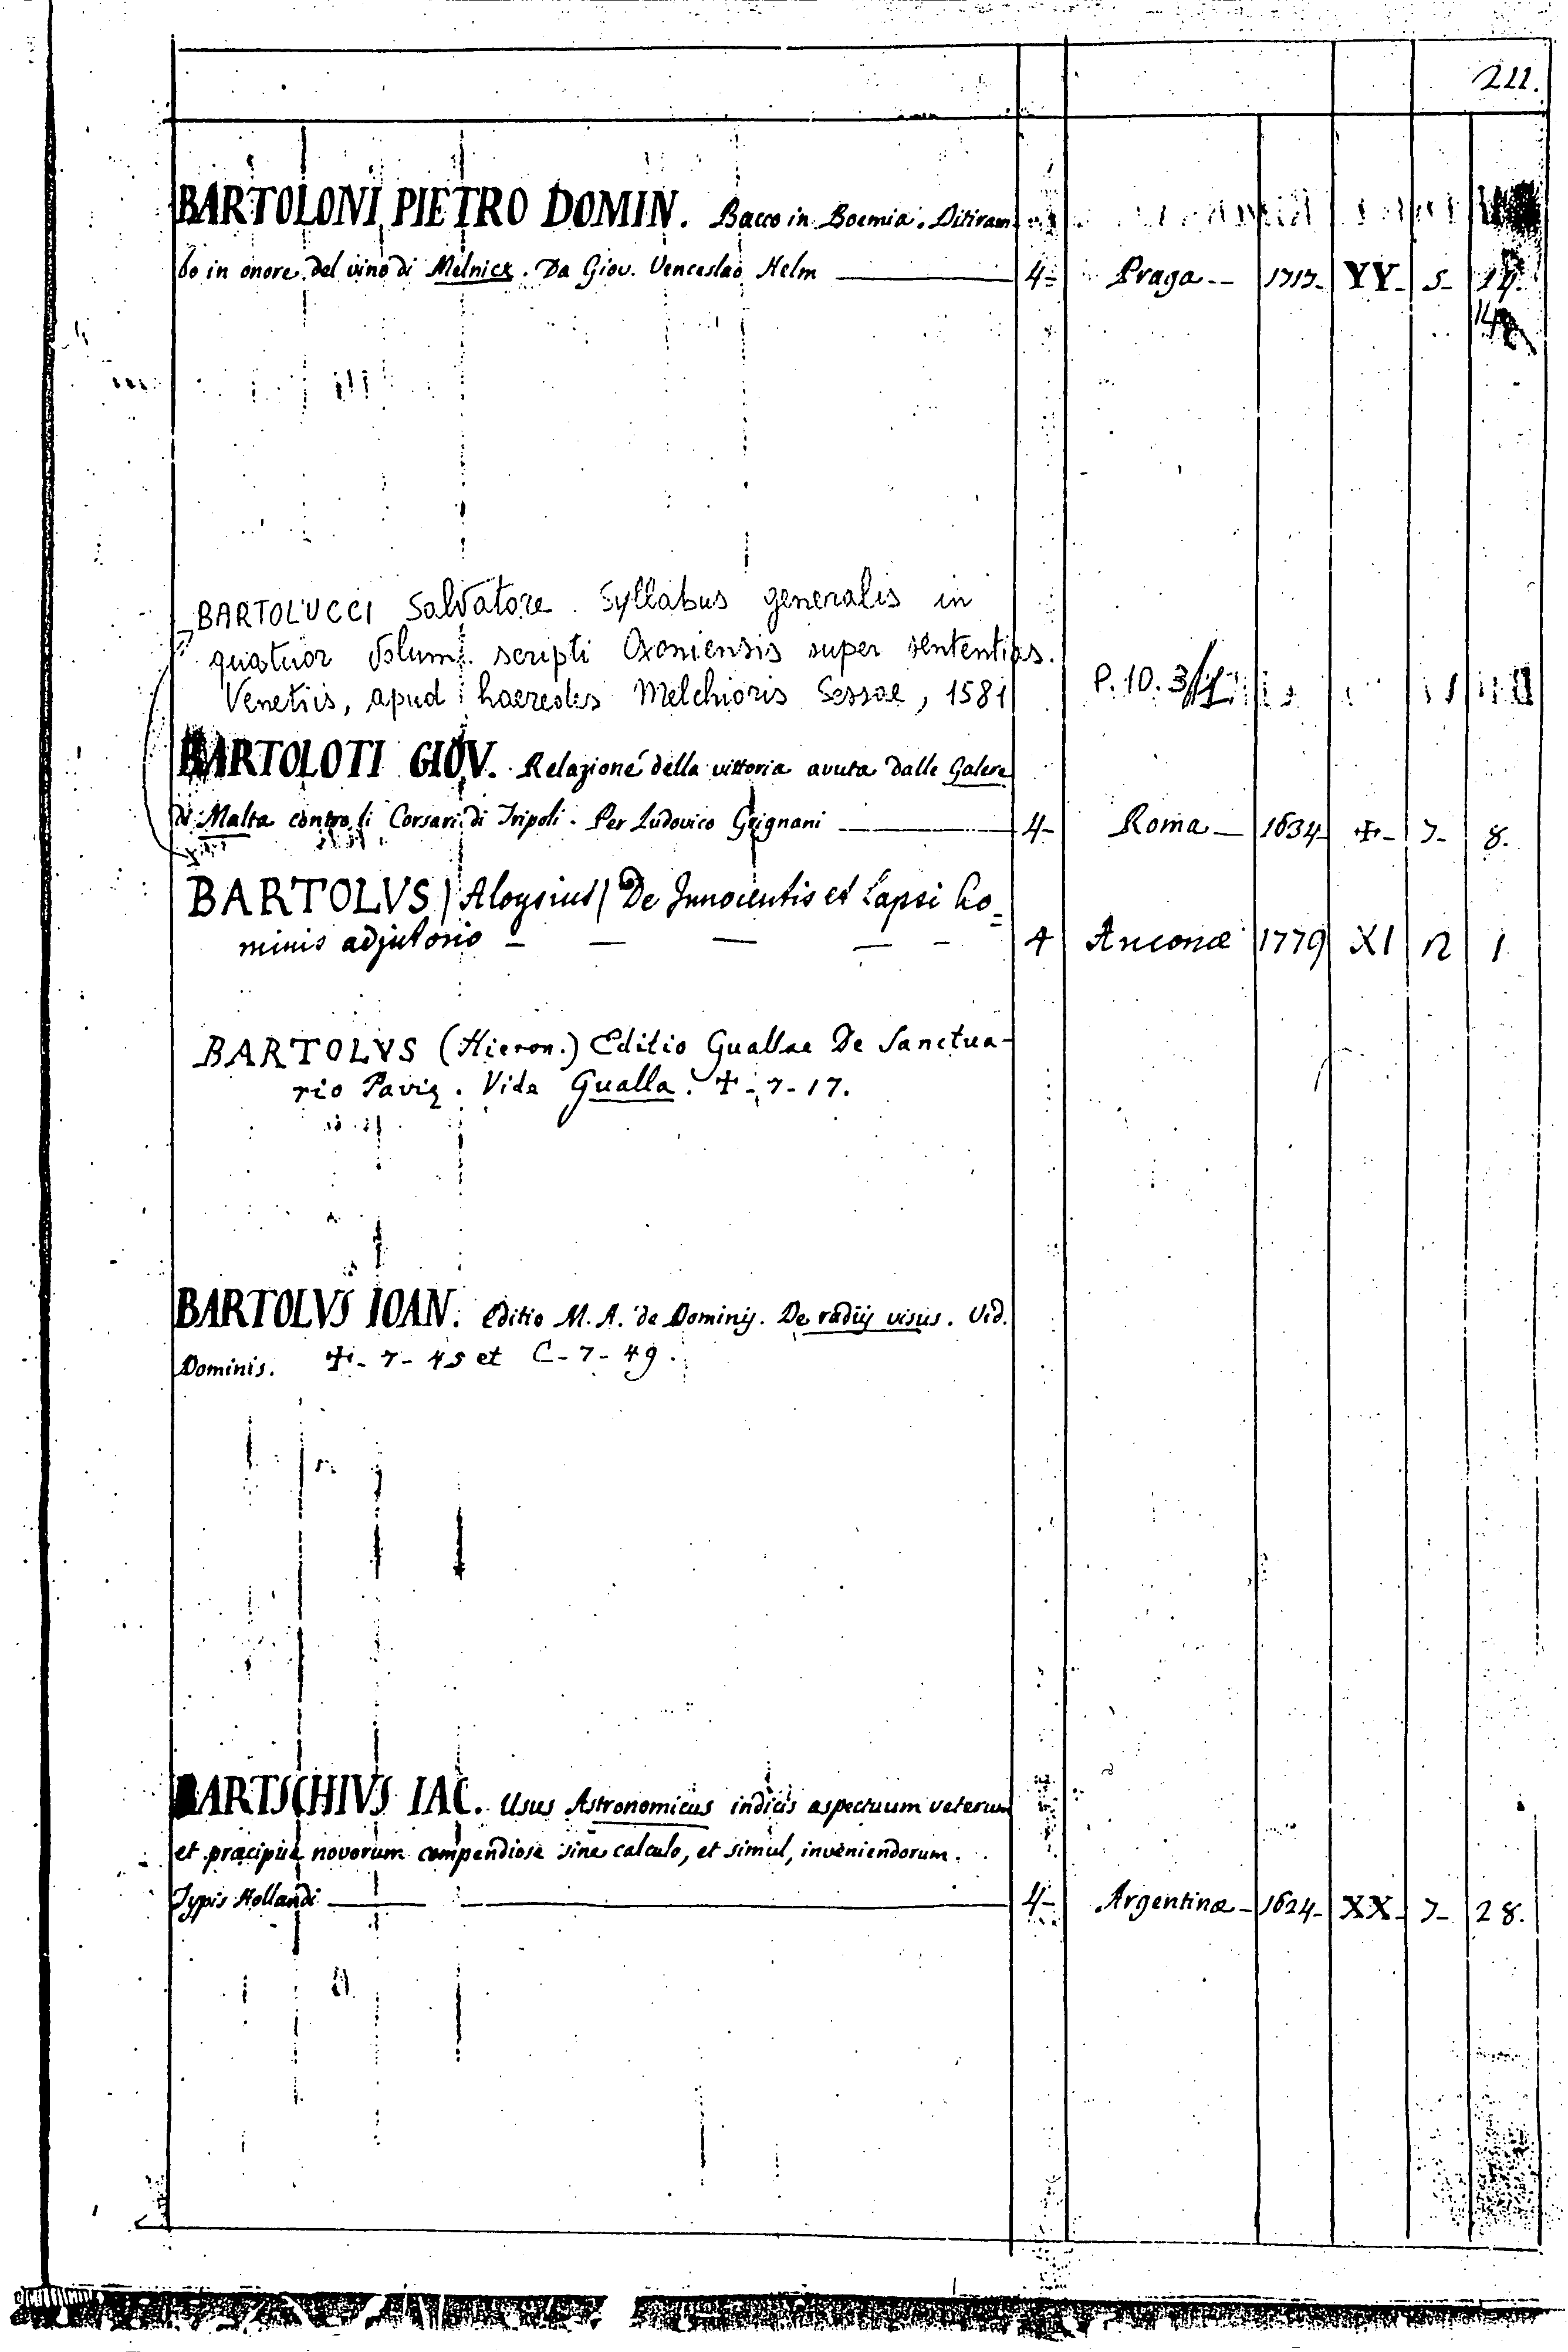 211.
BARTOLONI PIETRO DOMIN. Bacco in Boemia. Ditiram-
bo in onore del vino di Melnick. Da Giov. Venceslao Helm — 4- Praga - 1717- YY- 5- 14.
14
BARTOLUCCI Salvatore. Syllabus generalis in
quatuor Volum. scripti Oxoniensis super sententias.
Venetiis, apud haeredes Melchioris Sessae, 1581 P. 10. 3/1
BARTOLOTI GIOV. Relazione della vittoria avuta dalle Galere
di Malta contro li Corsari di Tripoli. Per Ludovico Grignani — 4- Roma - 1634- ✠- 7- 8.
BARTOLVS / Aloysius / De Innocentis et Lapsi ho=
minis adjutorio — — — — - 4 Anconæ 1779 XI 12 1
BARTOLVS (Hieron.) Editio Guallae De Sanctua-
rio Pavię. Vide Gualla. ✠-7-17.
BARTOLVS IOAN. Editio M. A. de Dominij. De radiij visus. Vid.
Dominis. ✠-7-45 et C-7-49.
BARTSCHIVS IAC. Usus Astronomicus indicis aspectuum veterum
et præcipuè novorum compendiose sine calculo, et simul, inveniendorum.
Typis Hollandi — 4- Argentinæ - 1624- XX- 7- 28.